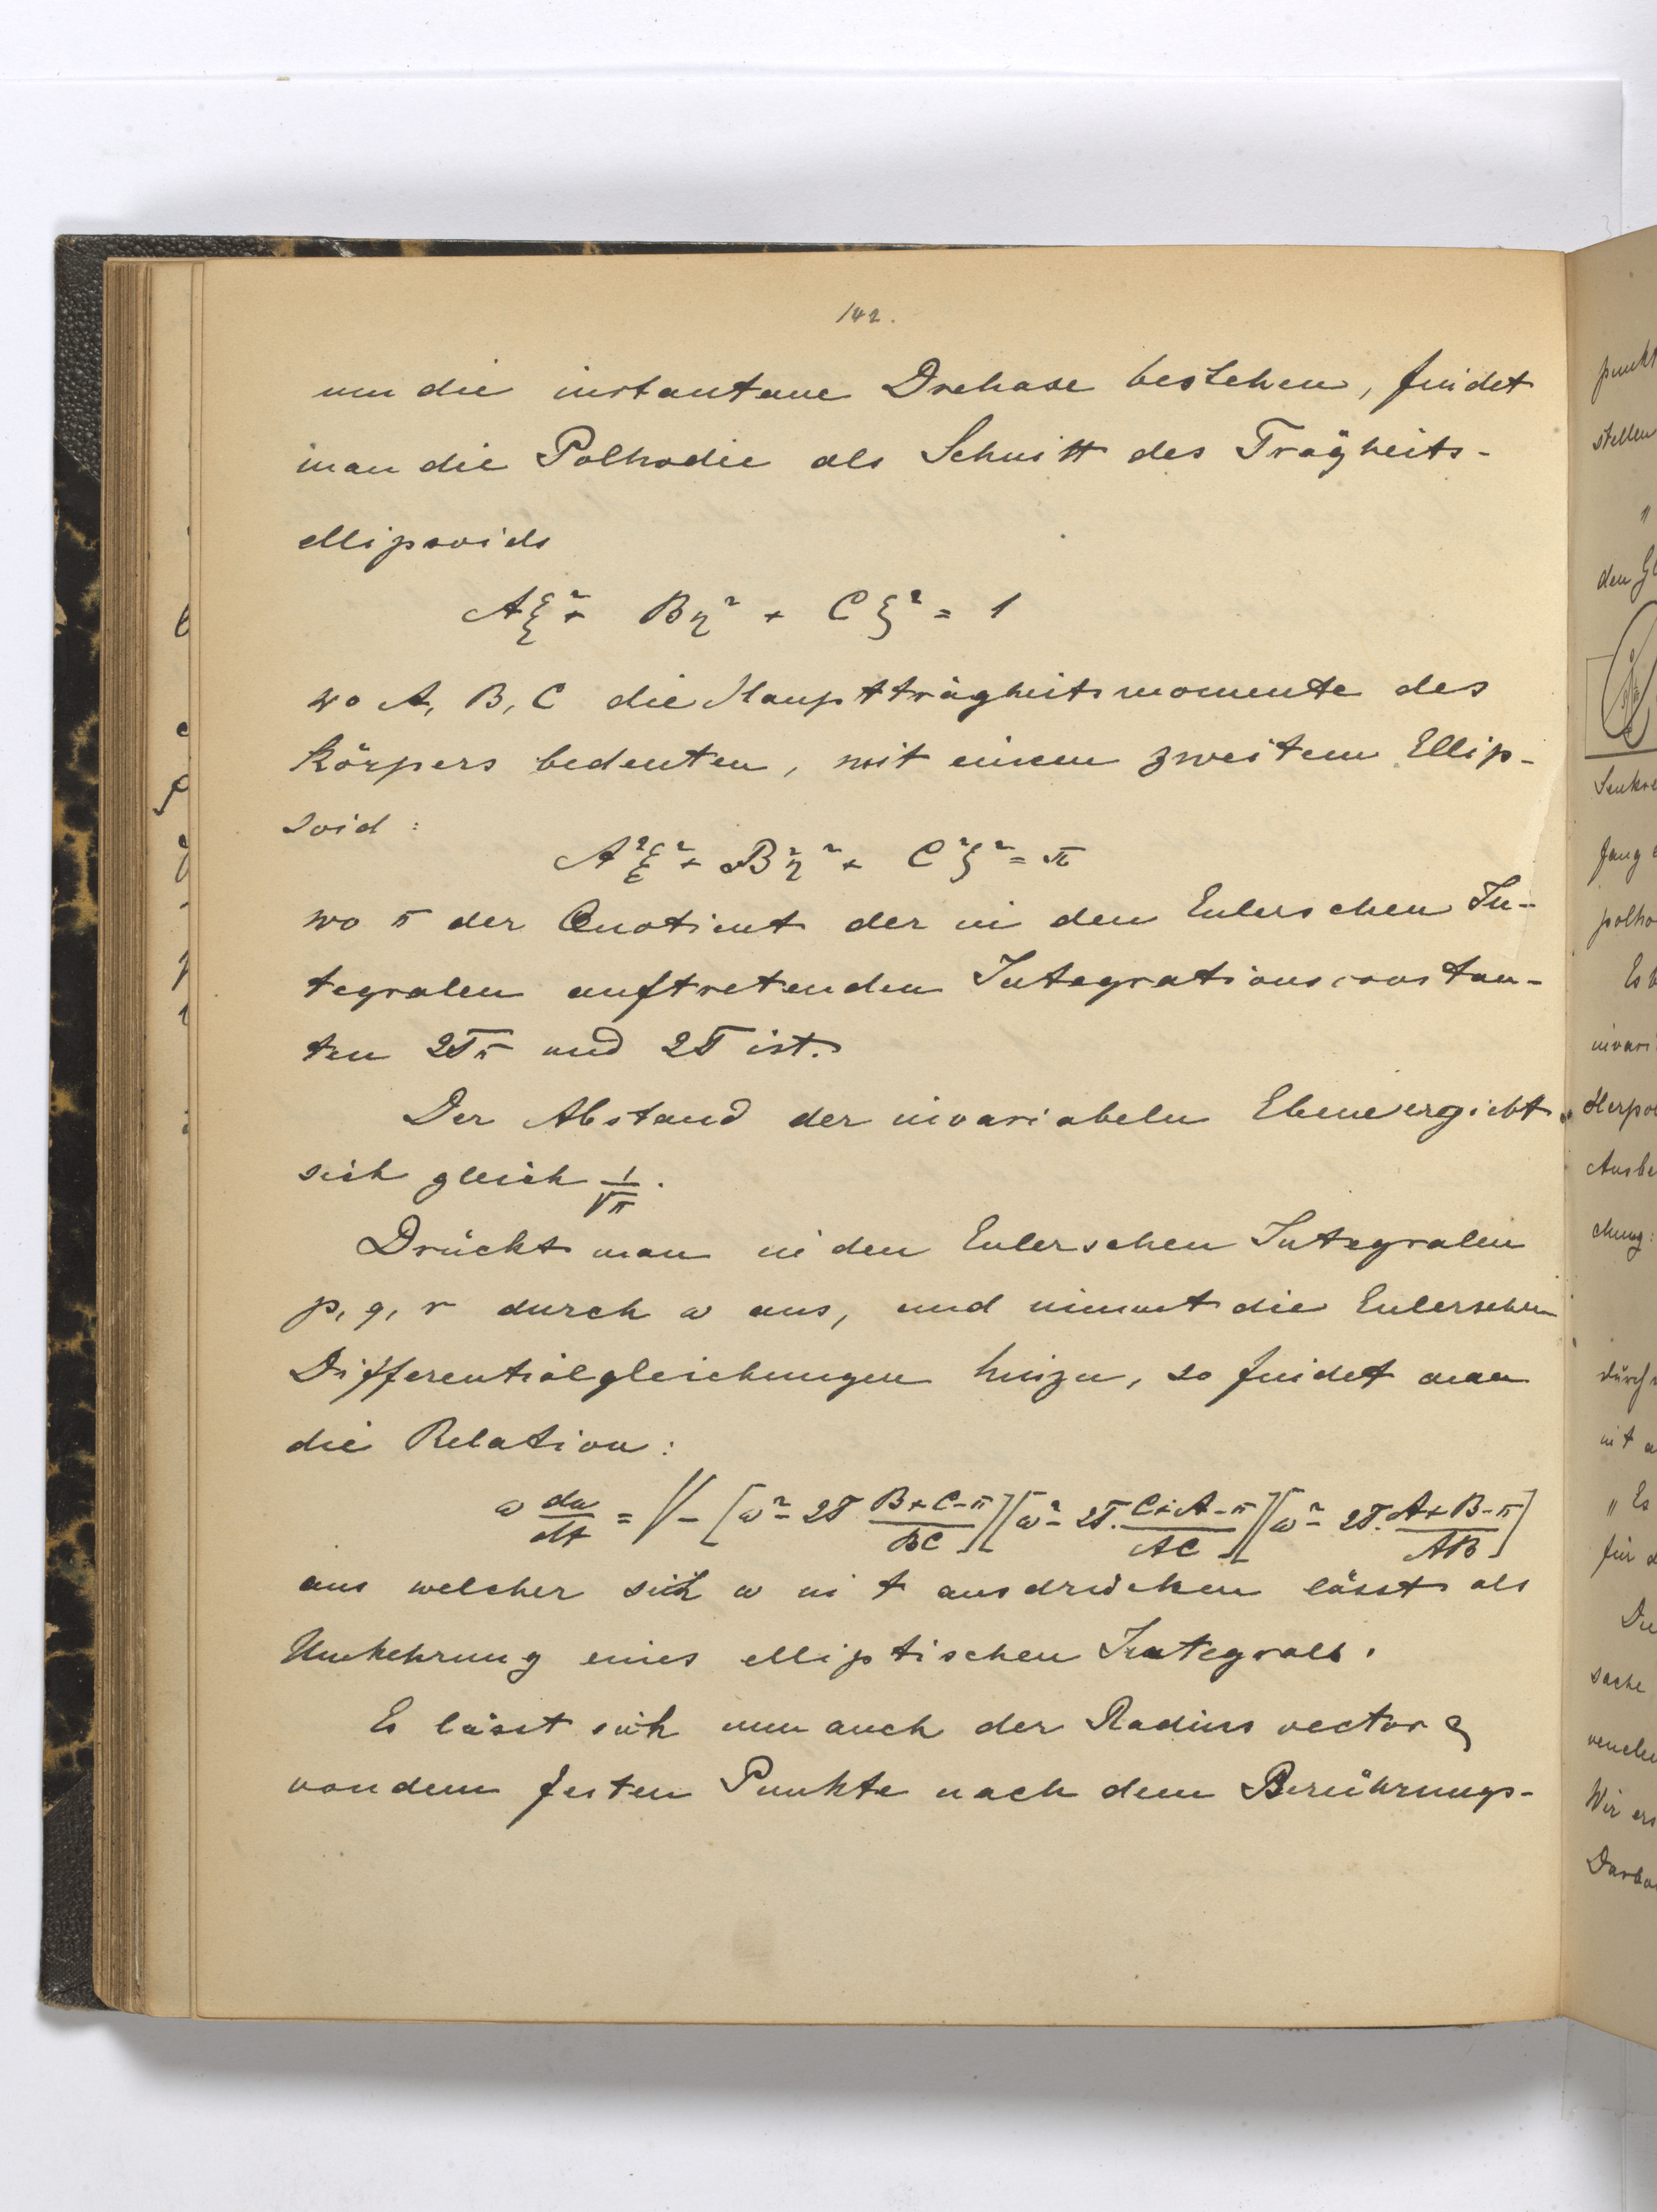 142.
um die instantane Drehaxe bestehen, findet
man die Polhodie als Schnitt des Trägheits-
ellipsoids
Aξ² + Bη² + Cζ² = 1
wo A, B, C die Hauptträgheitsmomente des
Körpers bedeuten, mit einem zweitem Ellip-
soid:
A²ξ² + B²η² + C²ζ² = π
wo π der Quotient der in den Eulerschen In-
tegralen auftretenden Integrationsconstan-
ten 2Tπ und 2T ist.
Der Abstand der invariabeln Ebene ergiebt
sich gleich 1/√π.
Drückt man in den Eulerschen Integralen
p, q, r durch ω aus, und nimmt die Eulerschen
Differentialgleichungen hinzu, so findet man
die Relation:
ω dω/dt = √-[ω² - 2T (B+C-π)/BC][ω² - 2T. (C+A-π)/AC][ω² - 2T. (A+B-π)/AB]
aus welcher sich ω in t ausdrücken lässt als
Umkehrung eines elliptischen Integrals.
Es lässt sich nun auch der Radius vector ϱ
von dem festen Punkte nach dem Berührungs-
punkt
stellen
"
den Gl
Senkre
fang
polho
Es
invari
Herpo
Ausbe
chung:
durch
in t
„Es
für d
Die
sache
Wir ers
Darbo